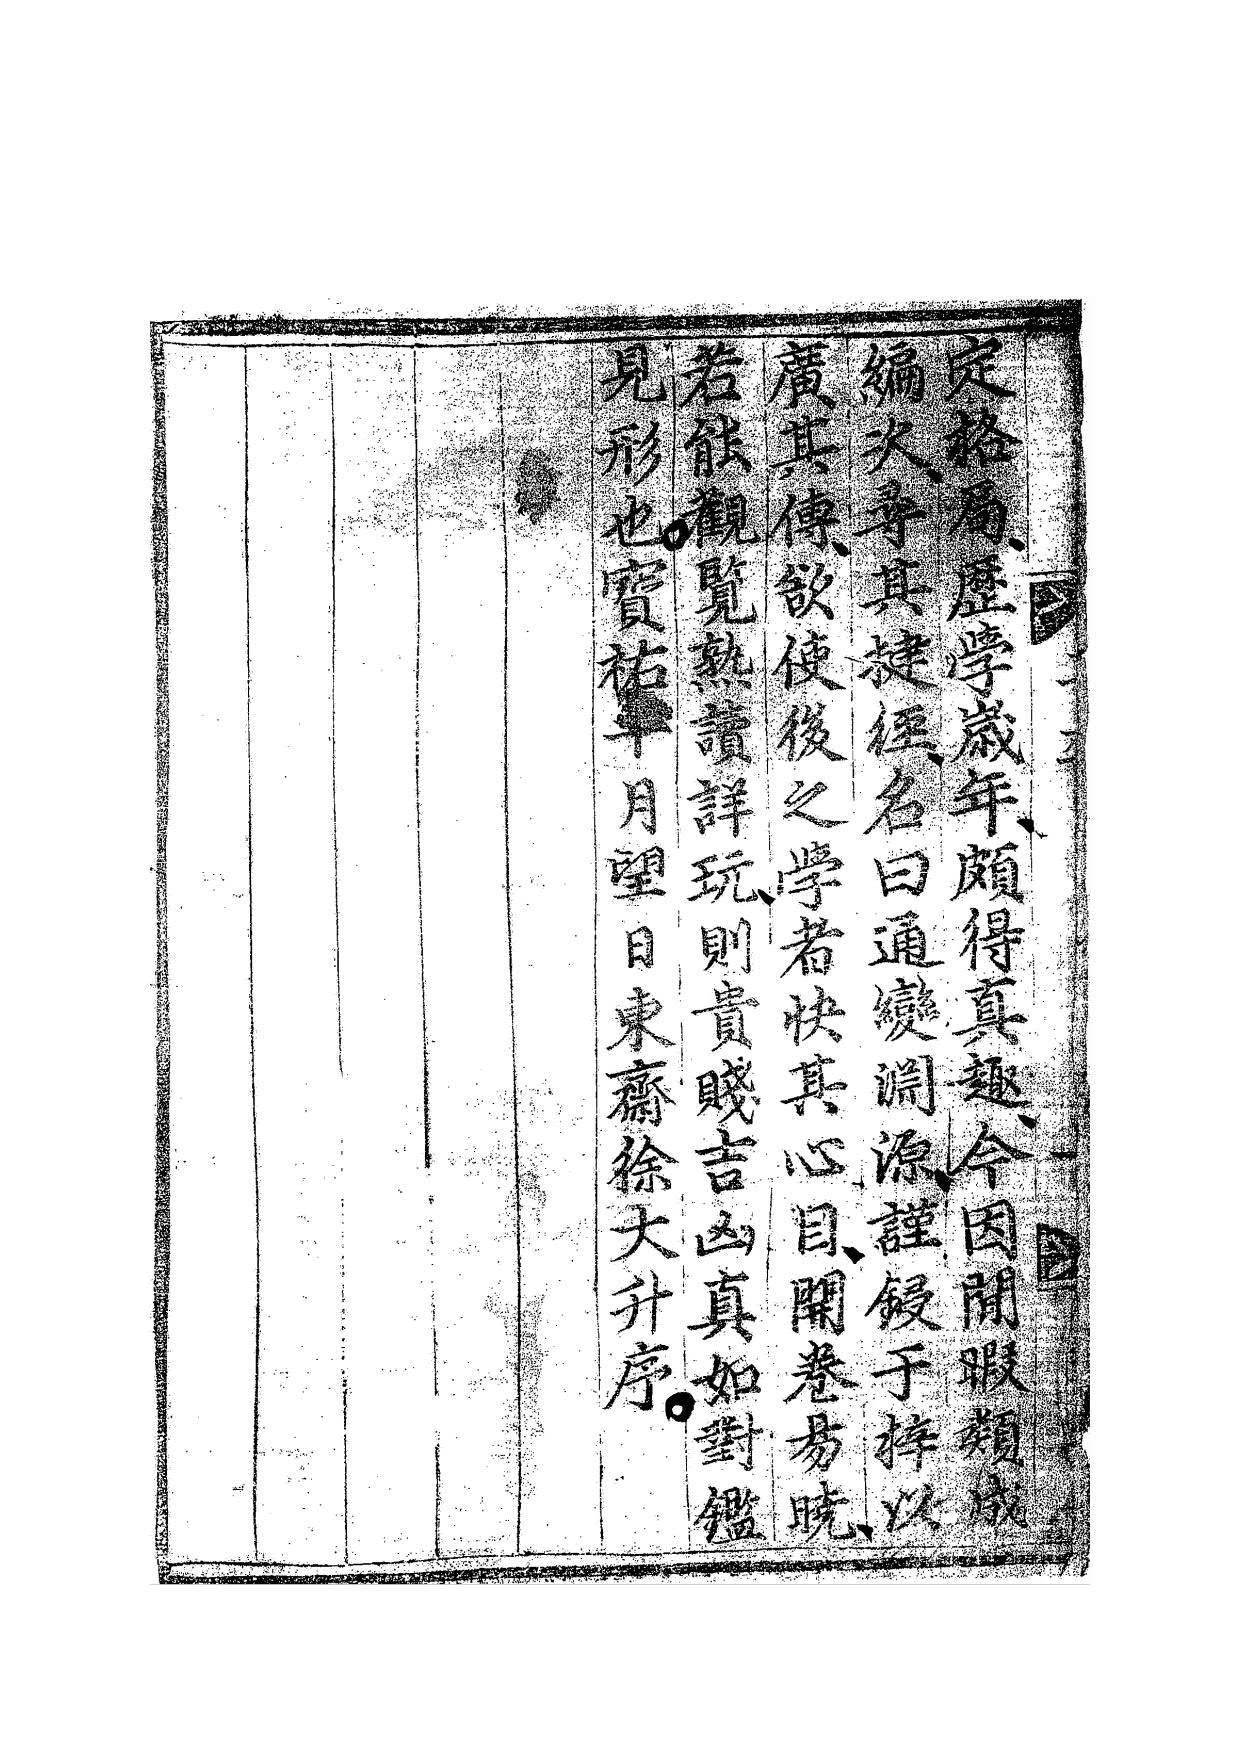 定格局歷學歲年頗得真趣今因閒暇類成
編次尋其捷徑名曰通變淵源謹鋟于梓以
廣其傳欲使後之學者快其心目開卷易曉
若能觀覽熟讀詳玩則貴賤吉凶真如對鑑
見形也寶祐年月望日東齋徐大升序